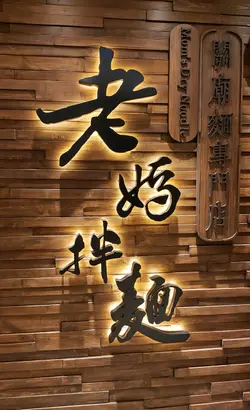 老媽拌麵
關廟麵專門店
Mom's Dry Noodle